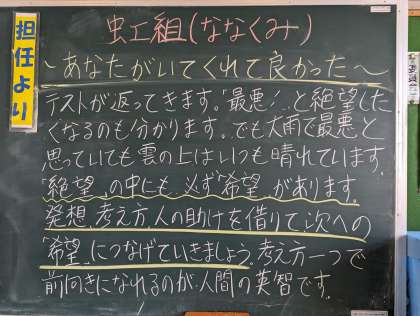 担任より
虹組(ななくみ)
~あなたがいてくれて良かった~
テストが返ってきます。「最悪!」と絶望した
くなるのも分かります。でも大雨で最悪と
思っていても雲の上はいつも晴れています。
「絶望」の中にも必ず「希望」があります。
発想、考え方、人の助けを借りて、次への
「希望」につなげていきましょう。考え方一つで
前向きになれるのが人間の英智です。